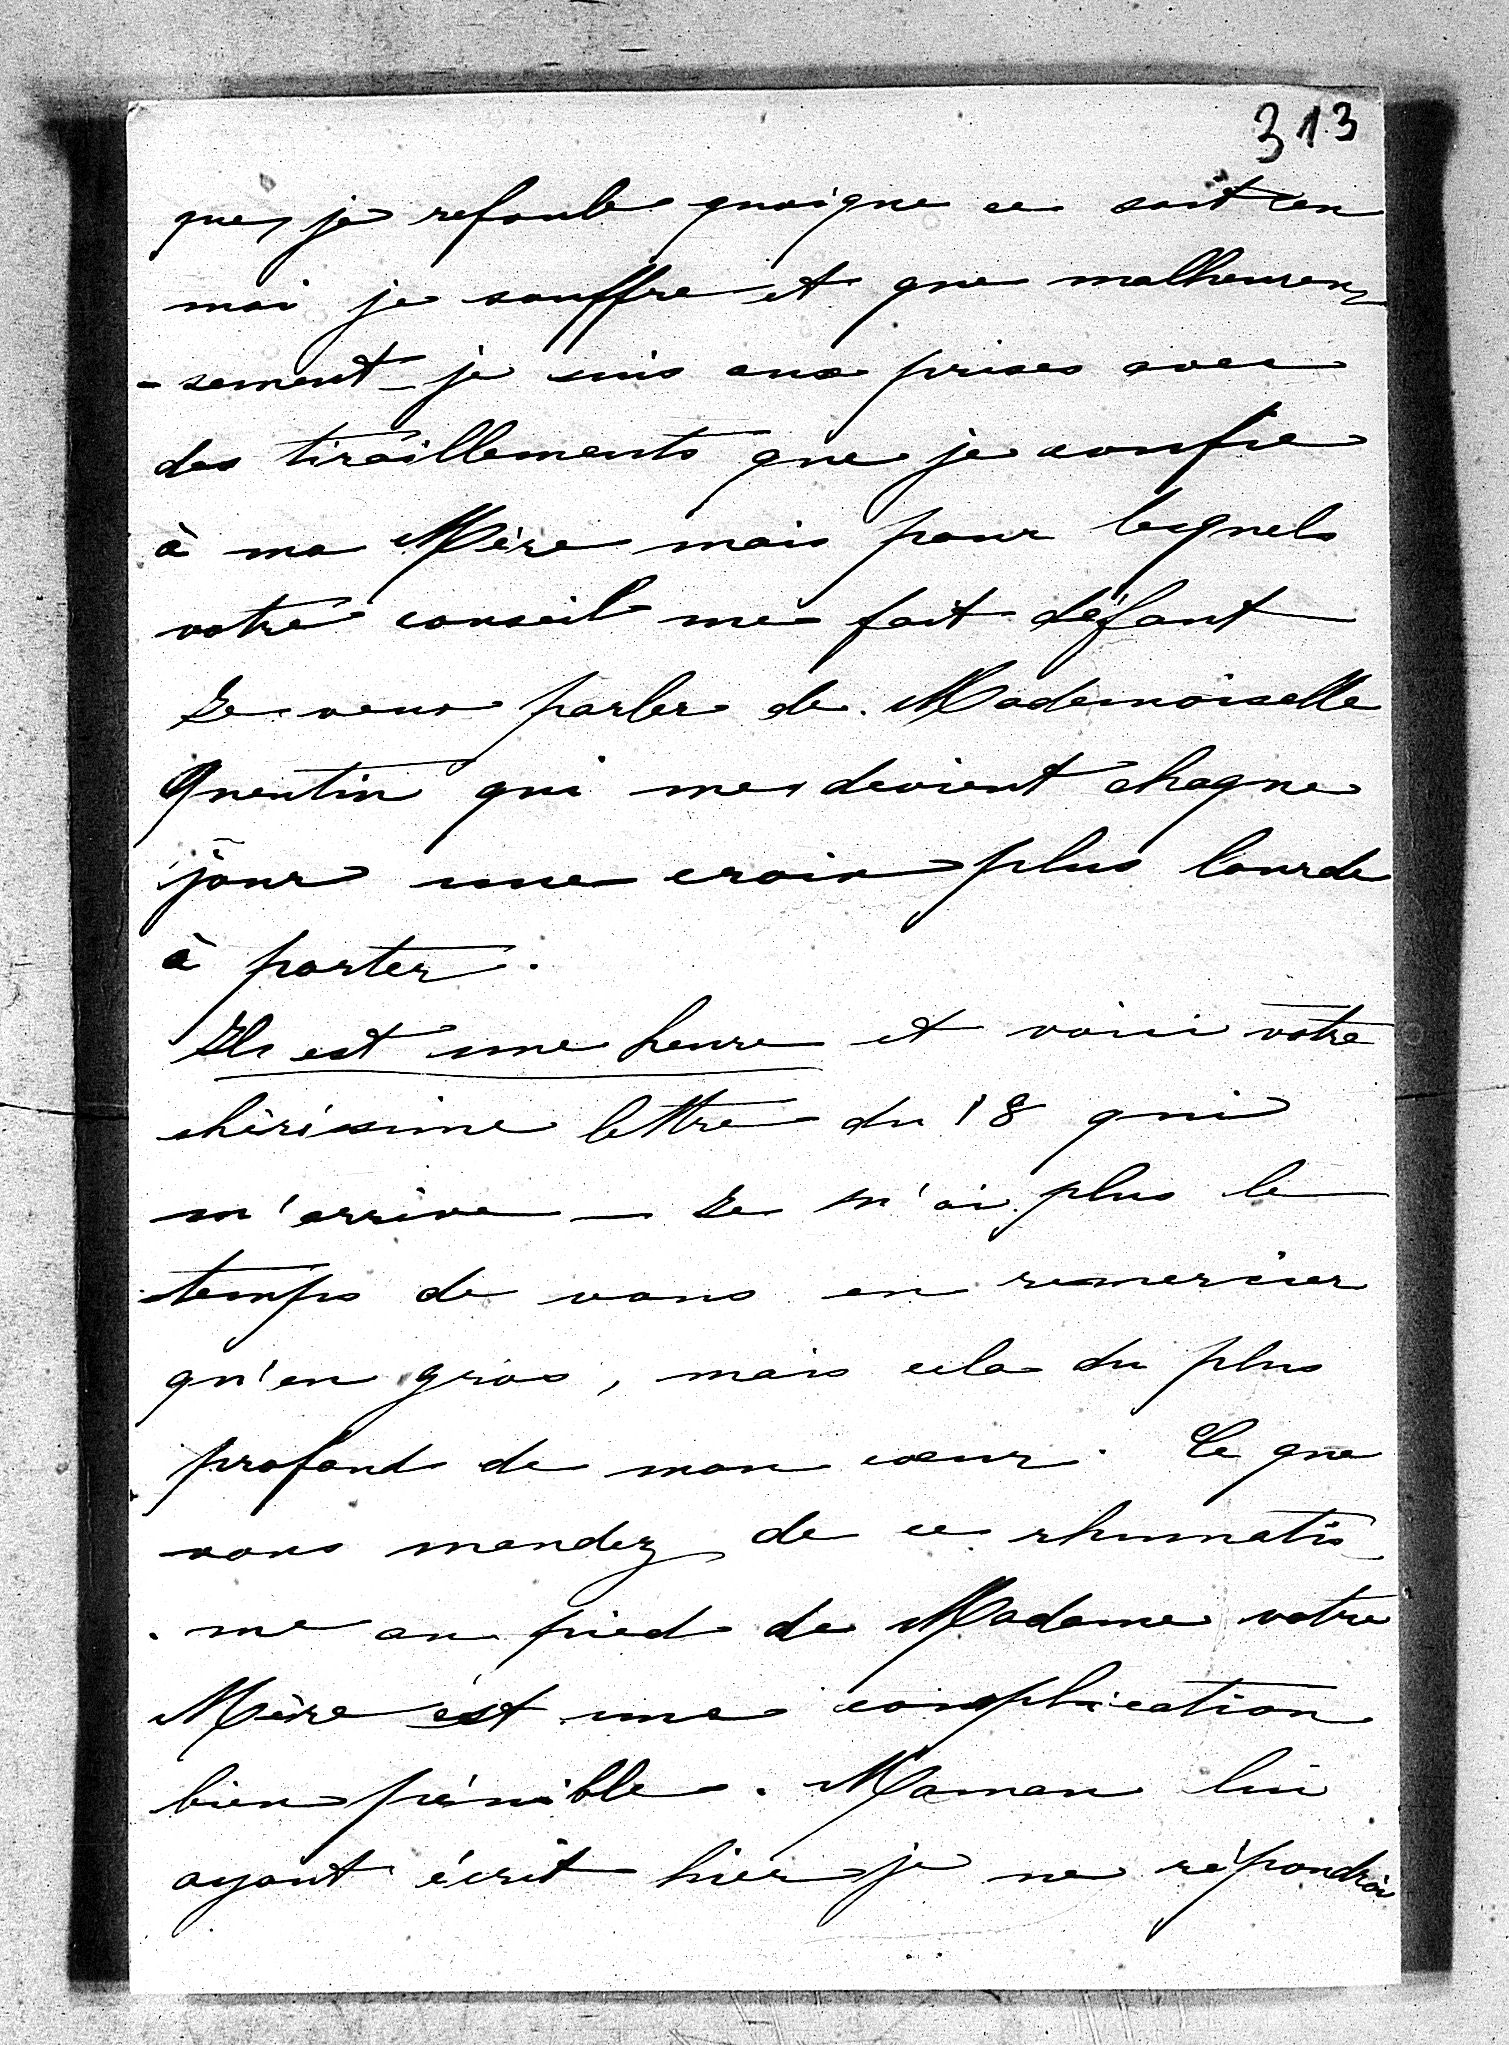 313
que je refoule quoique ce soit en
moi je souffre et que malheureu
-sement je suis aux prises avec
des tiraillements que je confie
à ma Mère mais pour lesquels
votre conseil me fait défaut
Je veux parler de Mademoiselle
Quentin qui me devient chaque
jour une croix plus lourde
à porter.
Il est une heure et voici votre
chérissime lettre du 18 qui
m'arrive — Je n'ai plus le
temps de vous en remercier
qu'en gros, mais cela du plus
profond de mon cœur. Ce que
vous mandez de ce rhumatis
-me au pied de Madame votre
Mère est une complication
bien pénible. Maman lui
ayant écrit hier je ne répondrai